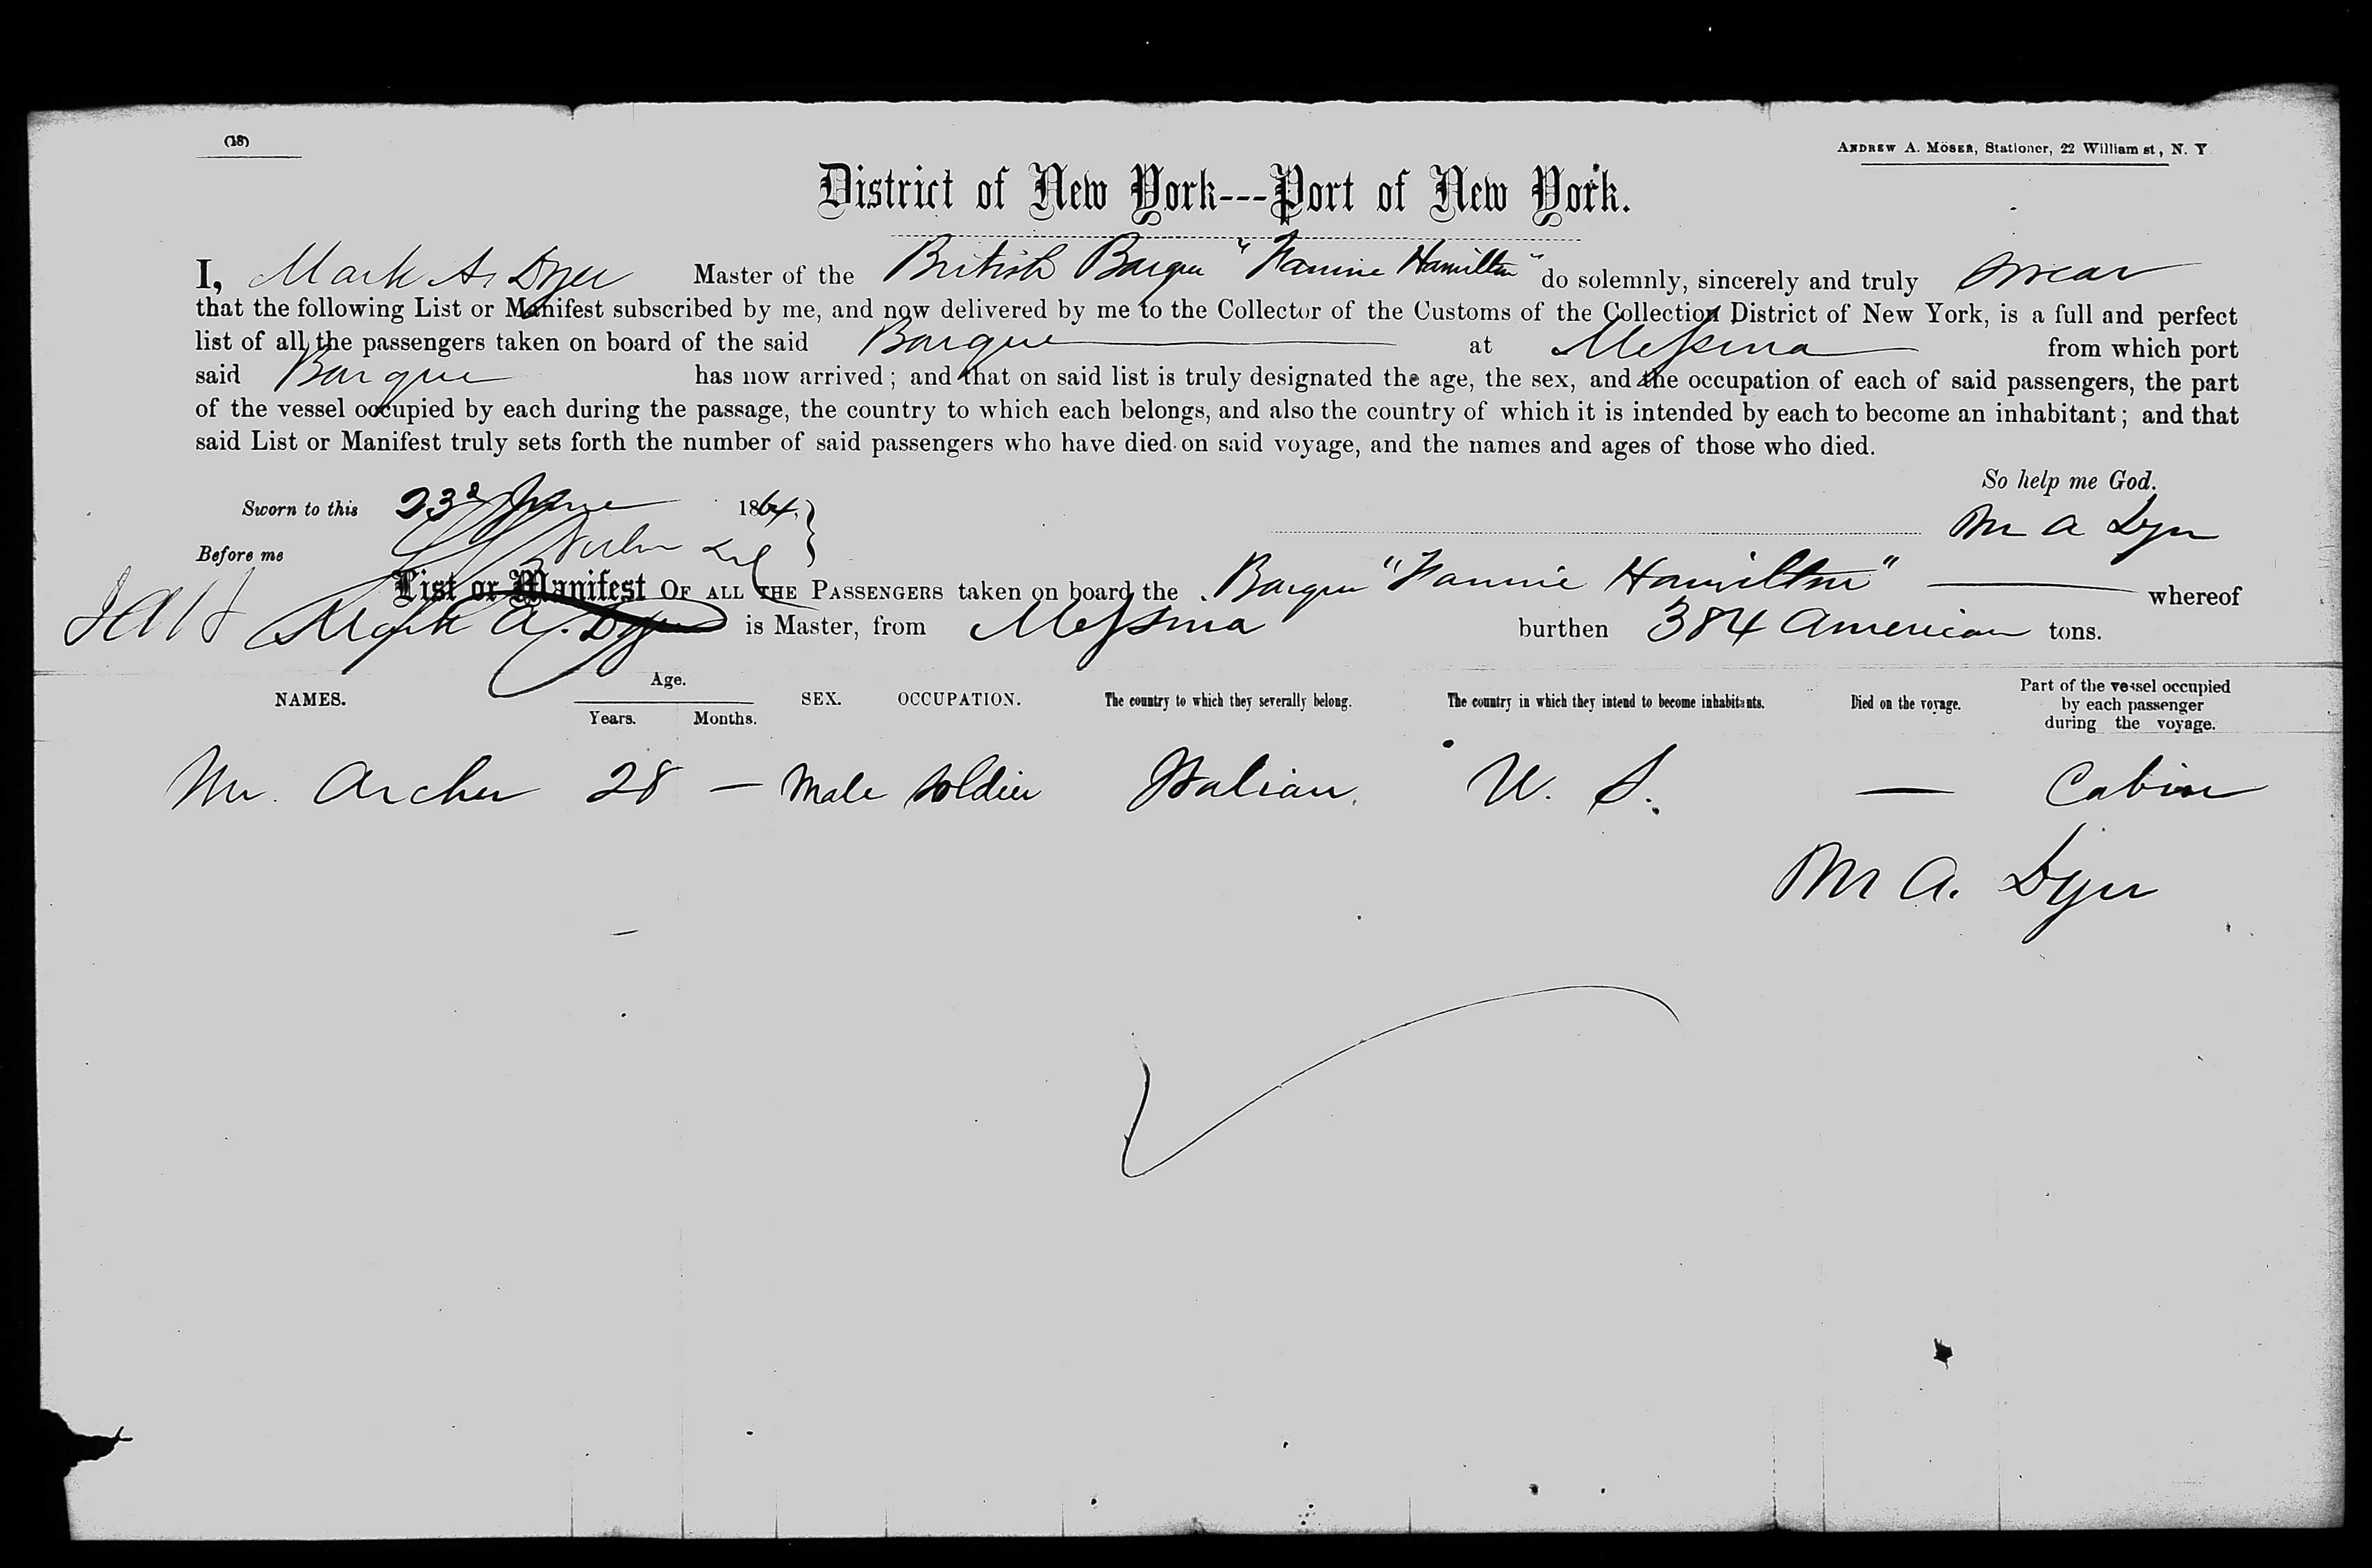 (18)
ANDREW A. MOSER, Stationer, 22 William st, N. Y.
District of New York---Port of New York.
I, Mark A. Dyer Master of the British Barque "Fannie Hamilton" do solemnly, sincerely and truly swear
that the following List or Manifest subscribed by me, and now delivered by me to the Collector of the Customs of the Collection District of New York, is a full and perfect
list of all the passengers taken on board of the said Barque at Messina from which port
said Barque has now arrived; and that on said list is truly designated the age, the sex, and the occupation of each of said passengers, the part
of the vessel occupied by each during the passage, the country to which each belongs, and also the country of which it is intended by each to become an inhabitant; and that
said List or Manifest truly sets forth the number of said passengers who have died on said voyage, and the names and ages of those who died.
So help me God.
Sworn to this 23d June 1864.
M A Dyer
Before me
List or Manifest OF ALL THE PASSENGERS taken on board the Barque "Fannie Hamilton" whereof
Mark A. Dyer is Master, from Messina burthen 384 American tons.
NAMES. Age. Years. Months. SEX. OCCUPATION. The country to which they severally belong. The country in which they intend to become inhabitants. Died on the voyage. Part of the vessel occupied by each passenger during the voyage.
Mr. Archer 28 — Male Soldier Italian. U. S. — Cabin
M A. Dyer